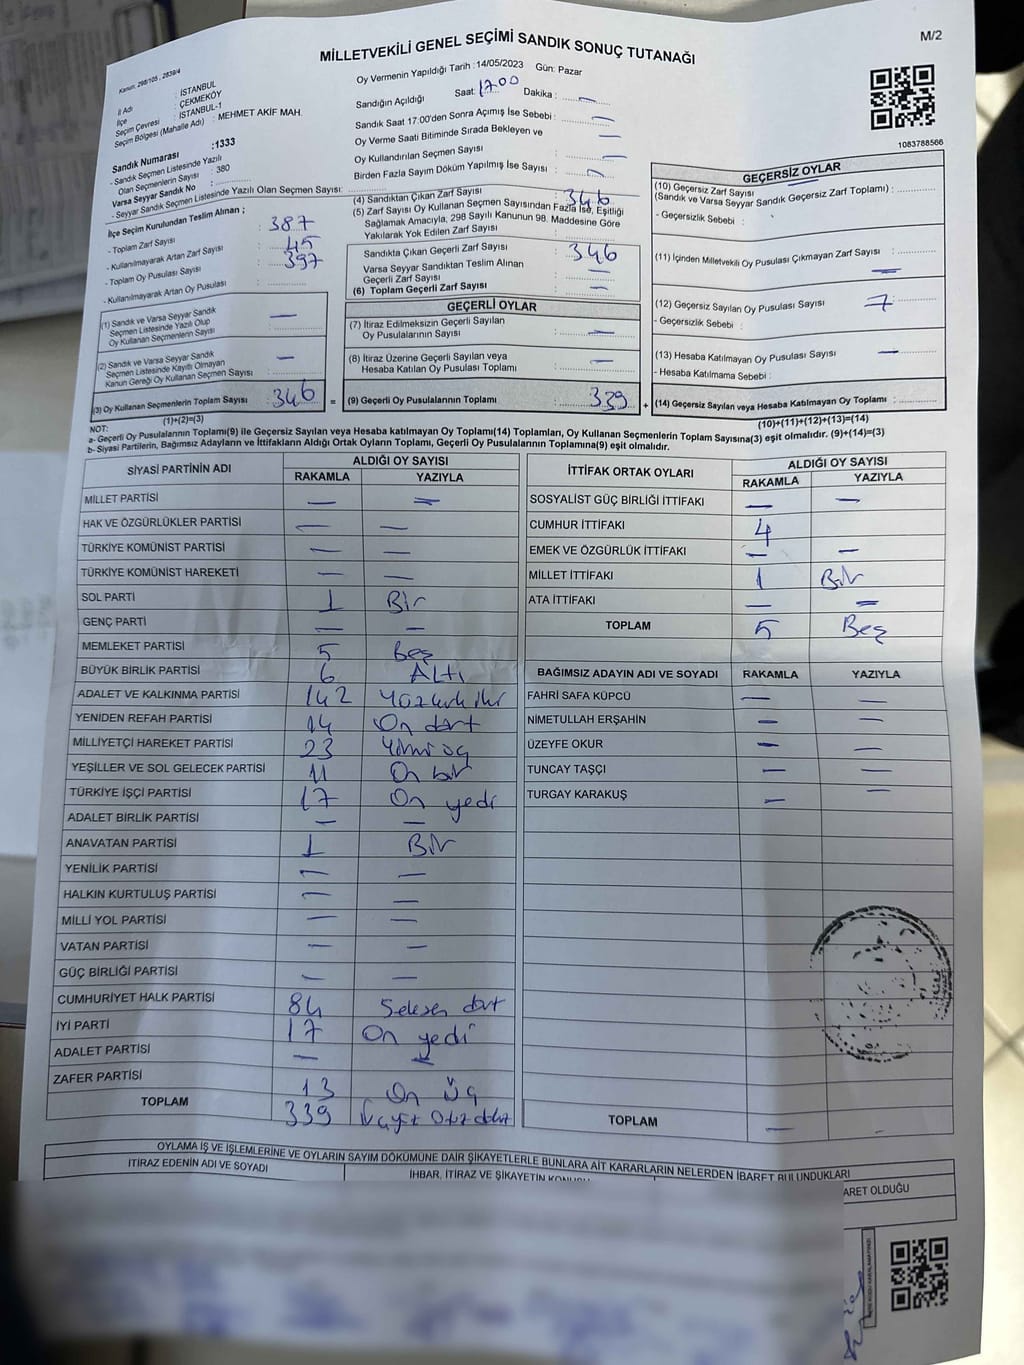 M/2
MİLLETVEKİLİ GENEL SEÇİMİ SANDIK SONUÇ TUTANAĞI
Kanun: 298/105, 2839/4
Oy Vermenin Yapıldığı Tarih : 14/05/2023 Gün: Pazar
İl Adı : İSTANBUL
İlçe : ÇEKMEKÖY
Seçim Çevresi : İSTANBUL-1
Seçim Bölgesi (Mahalle Adı) : MEHMET AKİF MAH.
Sandık Numarası :1333
- Sandık Seçmen Listesinde Yazılı
Olan Seçmenlerin Sayısı : 380
Varsa Seyyar Sandık No :
- Seyyar Sandık Seçmen Listesinde Yazılı Olan Seçmen Sayısı:
Sandığın Açıldığı Saat: 17.00 Dakika : —
Sandık Saat 17:00'den Sonra Açımış İse Sebebi : —
Oy Verme Saati Bitiminde Sırada Bekleyen ve
Oy Kullandırılan Seçmen Sayısı —
Birden Fazla Sayım Döküm Yapılmış İse Sayısı —
1083788566
İlçe Seçim Kurulundan Teslim Alınan ;
- Toplam Zarf Sayısı 387
- Kullanılmayarak Artan Zarf Sayısı 45
- Toplam Oy Pusulası Sayısı 397
- Kullanılmayarak Artan Oy Pusulası
(1) Sandık ve Varsa Seyyar Sandık
Seçmen Listesinde Yazılı Olup
Oy Kullanan Seçmenlerin Sayısı —
(2) Sandık ve Varsa Seyyar Sandık
Seçmen Listesinde Kayıtlı Olmayan
Kanun Gereği Oy Kullanan Seçmen Sayısı —
(3) Oy Kullanan Seçmenlerin Toplam Sayısı 346
(1)+(2)=(3)
(4) Sandıktan Çıkan Zarf Sayısı 346
(5) Zarf Sayısı Oy Kullanan Seçmen Sayısından Fazla İse, Eşitliği
Sağlamak Amacıyla, 298 Sayılı Kanunun 98. Maddesine Göre
Yakılarak Yok Edilen Zarf Sayısı
Sandıkta Çıkan Geçerli Zarf Sayısı 346
Varsa Seyyar Sandıktan Teslim Alınan
Geçerli Zarf Sayısı —
(6) Toplam Geçerli Zarf Sayısı —
GEÇERLİ OYLAR
(7) İtiraz Edilmeksizin Geçerli Sayılan
Oy Pusulalarının Sayısı —
(8) İtiraz Üzerine Geçerli Sayılan veya
Hesaba Katılan Oy Pusulası Toplamı —
= (9) Geçerli Oy Pusulalarının Toplamı 339 +
GEÇERSİZ OYLAR
(10) Geçersiz Zarf Sayısı
(Sandık ve Varsa Seyyar Sandık Geçersiz Zarf Toplamı) :
- Geçersizlik Sebebi :
(11) İçinden Milletvekili Oy Pusulası Çıkmayan Zarf Sayısı : —
(12) Geçersiz Sayılan Oy Pusulası Sayısı 7
- Geçersizlik Sebebi :
(13) Hesaba Katılmayan Oy Pusulası Sayısı —
- Hesaba Katılmama Sebebi :
(14) Geçersiz Sayılan veya Hesaba Katılmayan Oy Toplamı :
(10)+(11)+(12)+(13)=(14)
NOT:
a- Geçerli Oy Pusulalarının Toplamı(9) ile Geçersiz Sayılan veya Hesaba katılmayan Oy Toplamı(14) Toplamları, Oy Kullanan Seçmenlerin Toplam Sayısına(3) eşit olmalıdır. (9)+(14)=(3)
b- Siyasi Partilerin, Bağımsız Adayların ve İttifakların Aldığı Ortak Oyların Toplamı, Geçerli Oy Pusulalarının Toplamına(9) eşit olmalıdır.
SİYASİ PARTİNİN ADI ALDIĞI OY SAYISI
RAKAMLA YAZIYLA
MİLLET PARTİSİ — —
HAK VE ÖZGÜRLÜKLER PARTİSİ — —
TÜRKİYE KOMÜNİST PARTİSİ — —
TÜRKİYE KOMÜNİST HAREKETİ — —
SOL PARTİ 1 Bir
GENÇ PARTİ — —
MEMLEKET PARTİSİ 5 Beş
BÜYÜK BİRLİK PARTİSİ 6 Altı
ADALET VE KALKINMA PARTİSİ 142 Yüzkırk iki
YENİDEN REFAH PARTİSİ 14 On dört
MİLLİYETÇİ HAREKET PARTİSİ 23 Yirmi üç
YEŞİLLER VE SOL GELECEK PARTİSİ 11 On bir
TÜRKİYE İŞÇİ PARTİSİ 17 On yedi
ADALET BİRLİK PARTİSİ — —
ANAVATAN PARTİSİ 1 Bir
YENİLİK PARTİSİ — —
HALKIN KURTULUŞ PARTİSİ — —
MİLLİ YOL PARTİSİ — —
VATAN PARTİSİ — —
GÜÇ BİRLİĞİ PARTİSİ — —
CUMHURİYET HALK PARTİSİ 84 Seksen dört
İYİ PARTİ 17 On yedi
ADALET PARTİSİ — —
ZAFER PARTİSİ 13 On üç
TOPLAM 339 Üçyüz Otuz dokuz
İTTİFAK ORTAK OYLARI ALDIĞI OY SAYISI
RAKAMLA YAZIYLA
SOSYALİST GÜÇ BİRLİĞİ İTTİFAKI — —
CUMHUR İTTİFAKI 4
EMEK VE ÖZGÜRLÜK İTTİFAKI — —
MİLLET İTTİFAKI 1 Bir
ATA İTTİFAKI — —
TOPLAM 5 Beş
BAĞIMSIZ ADAYIN ADI VE SOYADI RAKAMLA YAZIYLA
FAHRİ SAFA KÜPCÜ — —
NİMETULLAH ERŞAHİN — —
ÜZEYFE OKUR — —
TUNCAY TAŞÇI — —
TURGAY KARAKUŞ — —
TOPLAM — —
OYLAMA İŞ VE İŞLEMLERİNE VE OYLARIN SAYIM DÖKÜMÜNE DAİR ŞİKAYETLERLE BUNLARA AİT KARARLARIN NELERDEN İBARET BULUNDUKLARI
İTİRAZ EDENİN ADI VE SOYADI
İHBAR, İTİRAZ VE ŞİKAYETİN KONUSU
ARET OLDUĞU